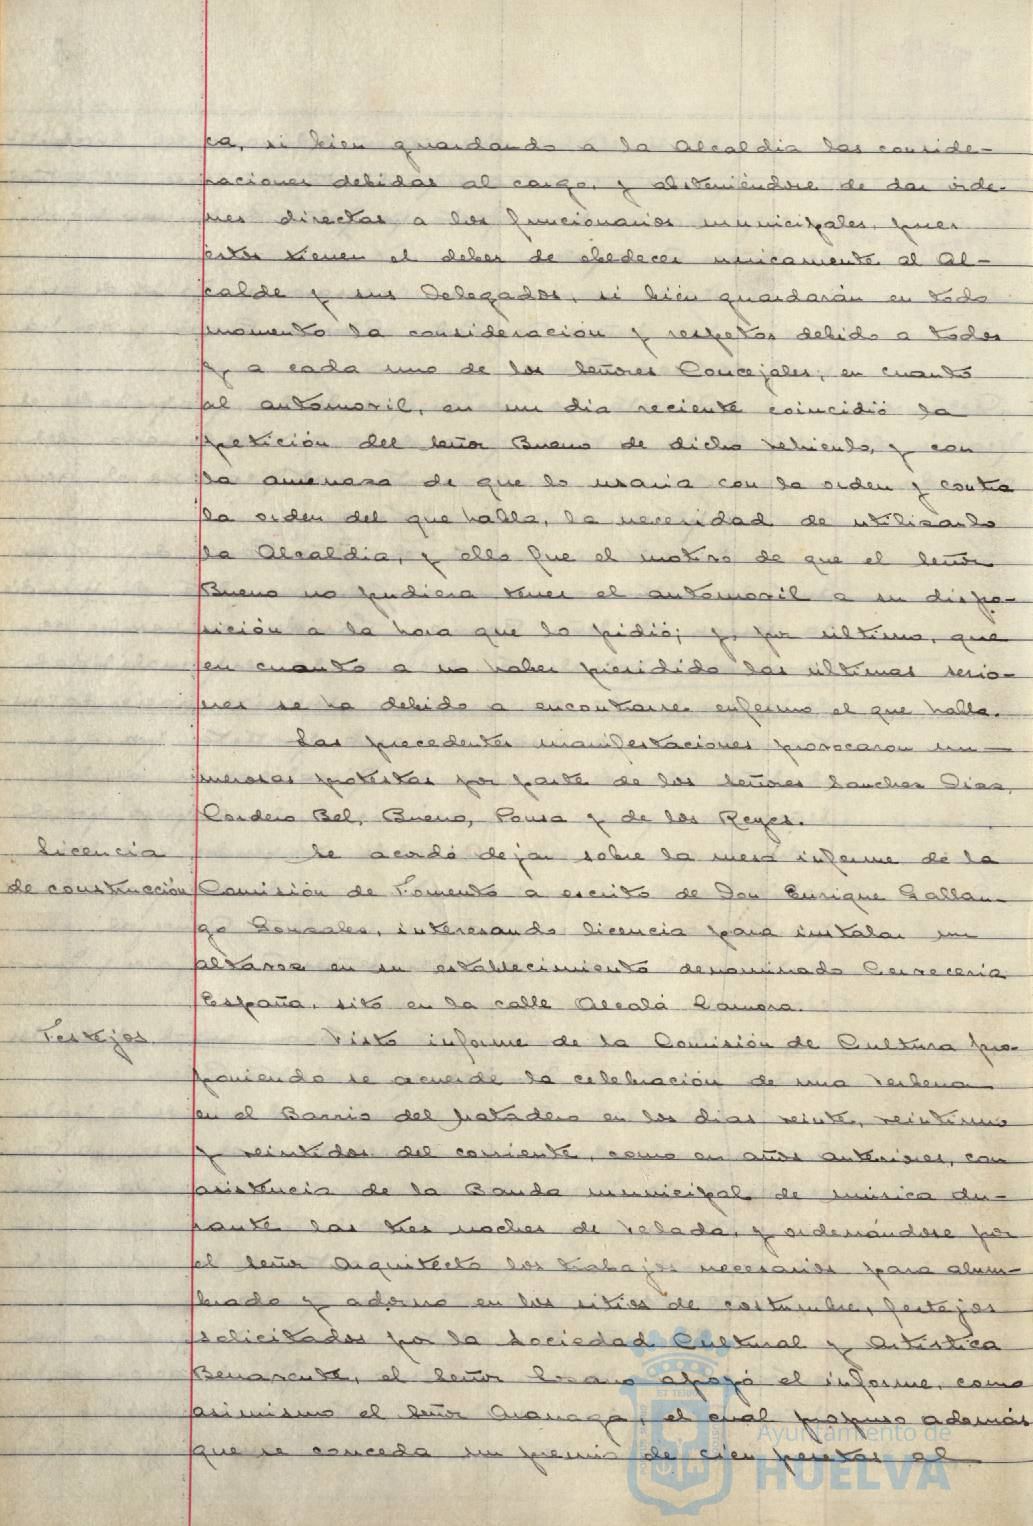 ca, si bien guardando a la Alcaldia las conside-
raciones debidas al cargo, y absteniéndose de dar órde-
nes directas a los funcionarios municipales, pues
éstos tienen el deber de obedecer unicamente al Al-
calde y sus Delegados, si bién guardarán en todo
momento la consideración y respetos debido a todos
y a cada uno de los señores Concejales; en cuanto
al automovil, en un dia reciente coincidió la
petición del señor Bueno de dicho vehiculo, y con
la amenaza de que lo usaria con la orden y contra
la orden del que habla, la necesidad de utilizarlo
la Alcaldia, y ello fue el motivo de que el señor
Bueno no pudiera tener el automovil a su dispo-
sición a la hora que lo pidió; y, por último, que
en cuanto a no haber presidido las últimas sesio-
nes se ha debido a encontrarse enfermo el que habla.
Las precedentes manifestaciones provocaron nu-
merosas protestas por parte de los señores Sanchez Diaz,
Cordero Bel, Bueno, Ponsa y de los Reyes.
Licencia
de construcción
Se acordó dejar sobre la mesa informe de la
Comisión de Fomento a escrito de Don Enrique Gallan-
go Gonzales, interesando licencia para instalar un
altavoz en su establecimiento denominado Cerveceria
España, sito en la calle Alcalá Zamora.
Festejos
Visto informe de la Comisión de Cultura pro-
poniendo se acuerde la celebración de una verbena
en el Barrio del Matadero en los dias veinte, veintiuno
y veintidos del corriente, como en años anteriores, con
asistencia de la Banda municipal de música du-
rante las tres noches de velada, y ordenándose por
el señor Arquitecto los trabajos necesarios para alum-
brado y adorno en los sitios de costumbre, festejos
solicitados por la Sociedad Cultural y Artistica
Benavente, el señor Lozano apoyó el informe, como
asimismo el señor Aranaga, el cual propuso además
que se conceda un premio de cien pesetas al
Ayuntamiento de
HUELVA